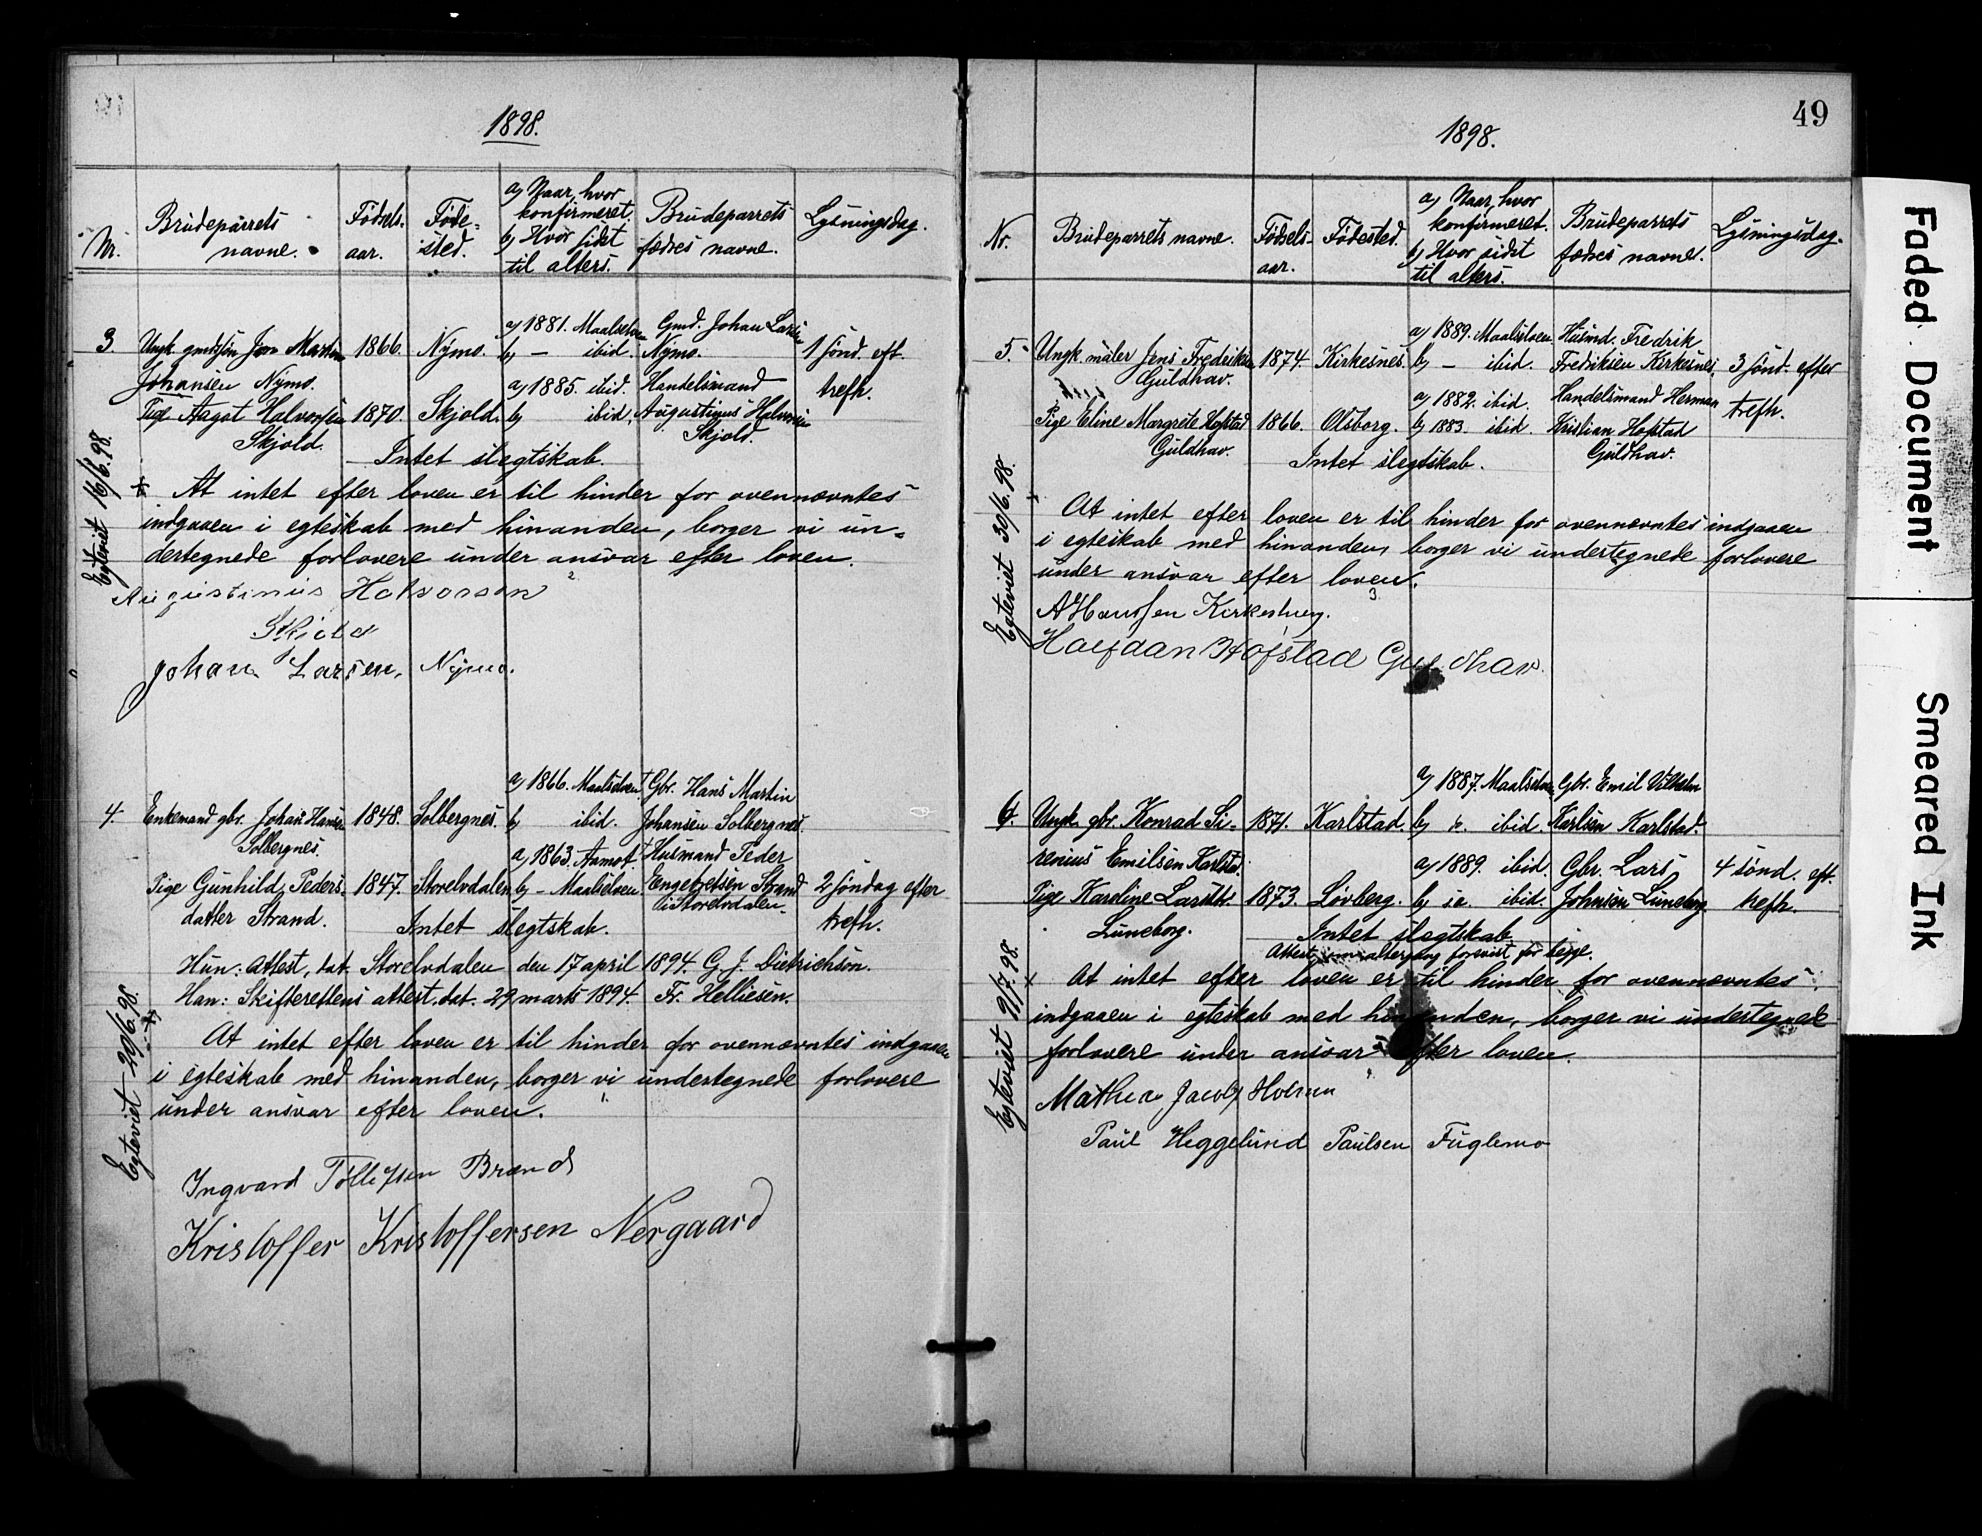 1898.
Nr.
Brudeparrets
navne.
Fødsels-
aar.
Føde-
sted.
a) Naar, hvor
konfirmeret.
b) Hvor sidst
til alters.
Brudeparrets
fædres navne.
Lysningsdag.
3. Ungk. gmdsøn Jon Martin 1866. Nymo. a) 1881. Maalselven Gmd. Johan Larsen 1 sønd. eft.
Johansen Nymo. b) — ibid. Nymo. trefh.
Pige Aagot Halvorsen 1870. Skjold. a) 1885. ibid. Handelsmand
Skjold. b) ibid. Augustinus Halvorsen
Skjold.
Intet slegtskab.
Egteviet 16/6.98.
At intet efter loven er til hinder for ovennævntes
indgaaen i egteskab med hinanden, borger vi un-
dertegnede forlovere under ansvar efter loven.
Augustinus Halvorsen
Skjold
Johan Larsen, Nymo.
4. Enkemand gbr. Johan Hansen 1848. Solbergnes. a) 1866. Maalselven Gbr. Hans Martin
Solbergnes. b) ibid. Johansen Solbergnes.
Pige Gunhild Peders- 1847. Storelvdalen a) 1863. Aamot Husmand Peder 2 søndag efter
datter Strand. b) — Maalselven Engebretsen Strand trefh.
i Storelvdalen
Intet slegtskab.
Hun: Attest, dat. Storelvdalen den 17 april 1894. G. J. Dietrichson.
Han: Skifterettens attest. dat. 29 marts 1894. Fr. Helliesen.
Egteviet 29/6.98.
At intet efter loven er til hinder for ovennævntes indgaaen
i egteskab med hinanden, borger vi undertegnede forlovere
under ansvar efter loven.
Ingvard Tollefsen Brand
Kristoffer Kristoffersen Nergaard
49
1898.
Nr.
Brudeparrets navne.
Fødsels-
aar.
Fødested.
a) Naar, hvor
konfirmeret.
b) Hvor sidst
til alters.
Brudeparrets
fædres navne.
Lysningsdag.
5. Ungk. maler Jens Fredriksen 1874. Kirkesnes. a) 1889. Maalselven Husmd. Fredrik 3 sønd. efter
Guldhav. b) — ibid. Fredriksen Kirkesnes. trefh.
Pige Eline Margrete Hofstad 1866. Olsborg. a) 1882. ibid. Handelsmand Herman
Guldhav. b) 1883. ibid. Kristian Hofstad
Guldhav.
Intet slegtskab.
Egteviet 30/6.98.
At intet efter loven er til hinder for ovennævntes indgaaen
i egteskab med hinanden, borger vi undertegnede forlovere
under ansvar efter loven.
A Hanssen
Halfdan Hofstad Guldhav.
6. Ungk. gbr. Konrad Si- 1871. Karlstad a) 1887. Maalselven Gbr. Emil Vilhelm
renius Emilsen Karlstad. b) ibid. Karlsen Karlstad.
Pige Karoline Larsdtr. 1873. Løvberg. a) 1889. ibid. Gbr. Lars 4 sønd. eft.
Luneborg. b) ibid. Johnsen Luneborg trefh.
Intet slegtskab
Attest om altergang forevist for begge.
Egteviet 19/7.98.
At intet efter loven er til hinder for ovennævntes
indgaaen i egteskab med hinanden, borger vi undertegnede
forlovere under ansvar efter loven.
Mathias Jacob
Paul Heggelund Paulsen Fuglemo
Faded Document
Smeared Ink